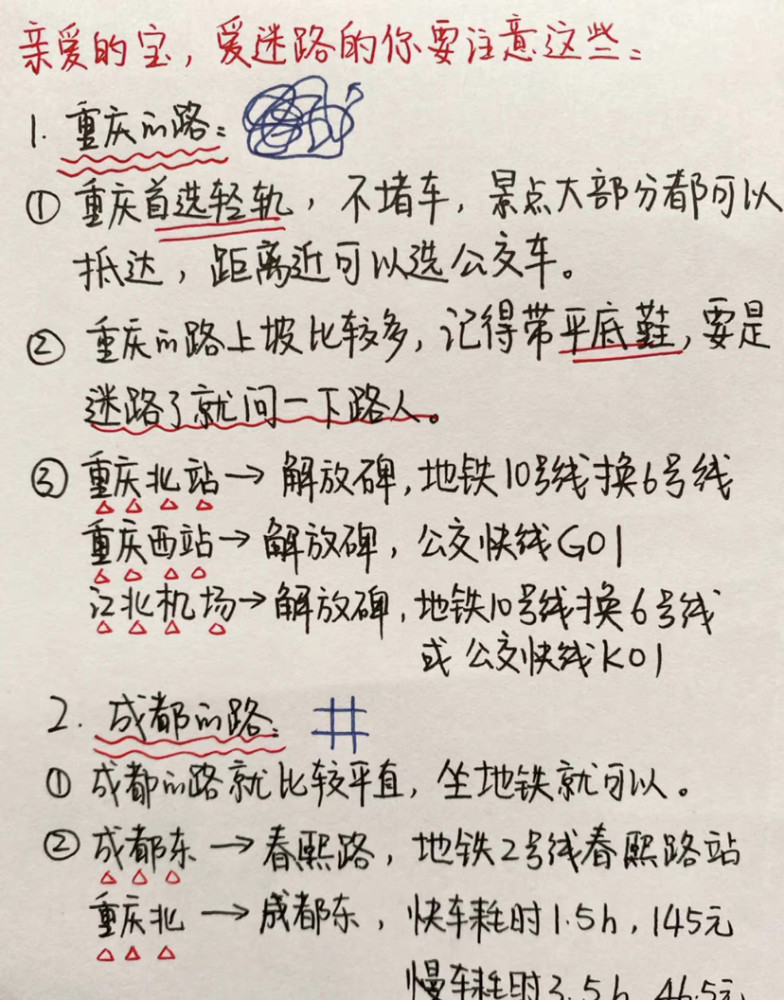 亲爱的宝，爱迷路的你要注意这些：
1. 重庆的路：
① 重庆首选轻轨，不堵车，景点大部分都可以
抵达，距离近可以选公交车。
② 重庆的路上坡比较多，记得带平底鞋，要是
迷路了就问一下路人。
③ 重庆北站→解放碑，地铁10号线换6号线
重庆西站→解放碑，公交快线G01
江北机场→解放碑，地铁10号线换6号线
或公交快线K01
2. 成都的路：
① 成都的路就比较平直，坐地铁就可以。
② 成都东→春熙路，地铁2号线春熙路站
重庆北→成都东，快车耗时1.5h，145元
慢车耗时3.5h，46.5元